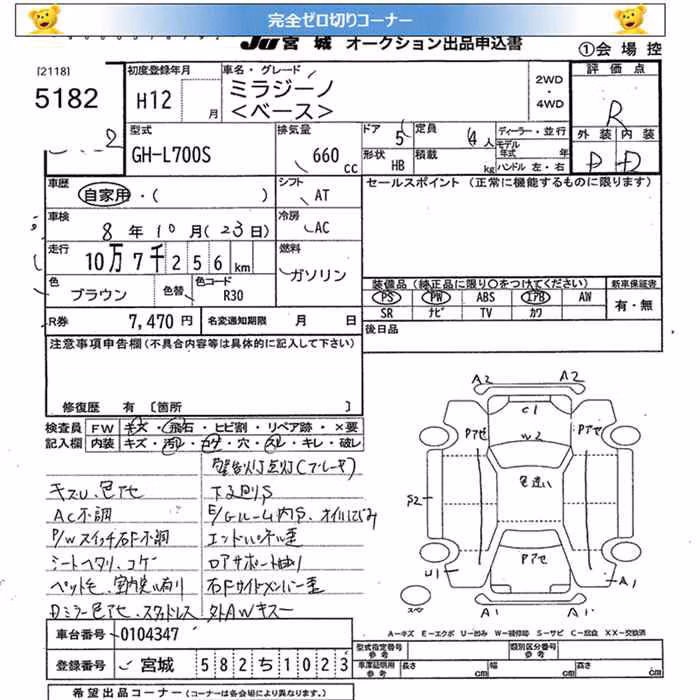 完全ゼロ切りコーナー
JU 宮城 オークション出品申込書
①会場控
[2118]
5182
初度登録年月
H12 月
車名・グレード
ミラジーノ
<ベース>
2WD
・
4WD
評価点
R
外装 内装
D D
型式
GH-L700S
排気量
660 cc
ドア 5
定員 4人
ディーラー・並行
モデル年式 年
形状 HB
積載 kg
ハンドル 左・右
車歴
自家用・( )
シフト
AT
セールスポイント (正常に機能するものに限ります)
車検
8年10月(23日)
冷房
AC
走行
10万7千256km
燃料
ガソリン
色
ブラウン
色替
色コード
R30
装備品(純正品に限り○をつけてください)
新車保証書
PS PW ABS エアB AW
有・無
SR ナビ TV カワ
R券 7,470円
名変通知期限 月 日
後日品
注意事項申告欄(不具合内容等は具体的に記入して下さい)
修復歴 有 〔箇所 〕
検査員 FW キズ・飛石・ヒビ割・リペア跡・×要
記入欄 内装 キズ・汚レ・コゲ・穴・スレ・キレ・破レ
警告灯点灯(ブレーキ)
キズU、色アセ
下廻りS
AC不調
E/Gルーム内S、オイルにじみ
P/Wスイッチ右F不調
エンドパネル歪
シートヘタリ、コゲ
ロアサポート曲り
ペット毛、室内臭い有り
右Fサイドメンバー歪
Dミラー色アセ、スタッドレス
外AWキズ
A2 A2
C1
Pアせ Pアせ
W2
色違い
S2
Pアせ
U1 A1
A1 A1
A-キズ E-エクボ U-凹み W-補修跡 S-サビ C-腐食 XX-交換済
車台番号 0104347
型式指定番号 参考
類別区分番号 参考
登録番号 宮城 582ち1023
車庫証明用 参考 長さ cm 幅 cm 高さ cm
希望出品コーナー(コーナーは各会場により異なります。)